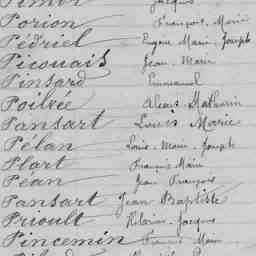 Jacques
Porion François, Marie
Pédriel Eugène Marie Joseph
Picouais Jean Marie
Pinsard Emmanuel
Poilvée Alexis Mathurin
Pansart Louis Marie
Pélan Louis Marie Joseph
Plart François Marie
Péan Jean François
Pansart Jean Baptiste
Prioult Hilarion Jacques
Pincemin François Marie